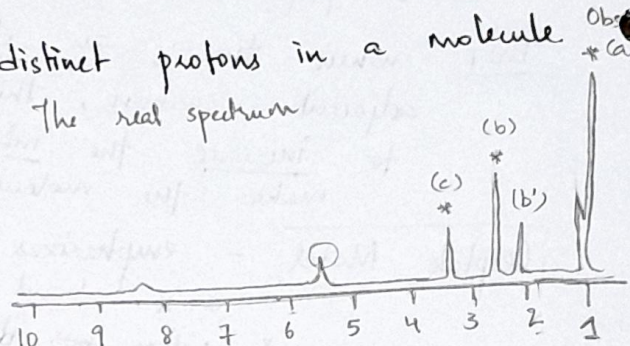 distinct protons in a molecule
* (a
The real spectrum
(b)
*
(c)
*
(b')
10 9 8 7 6 5 4 3 2 1